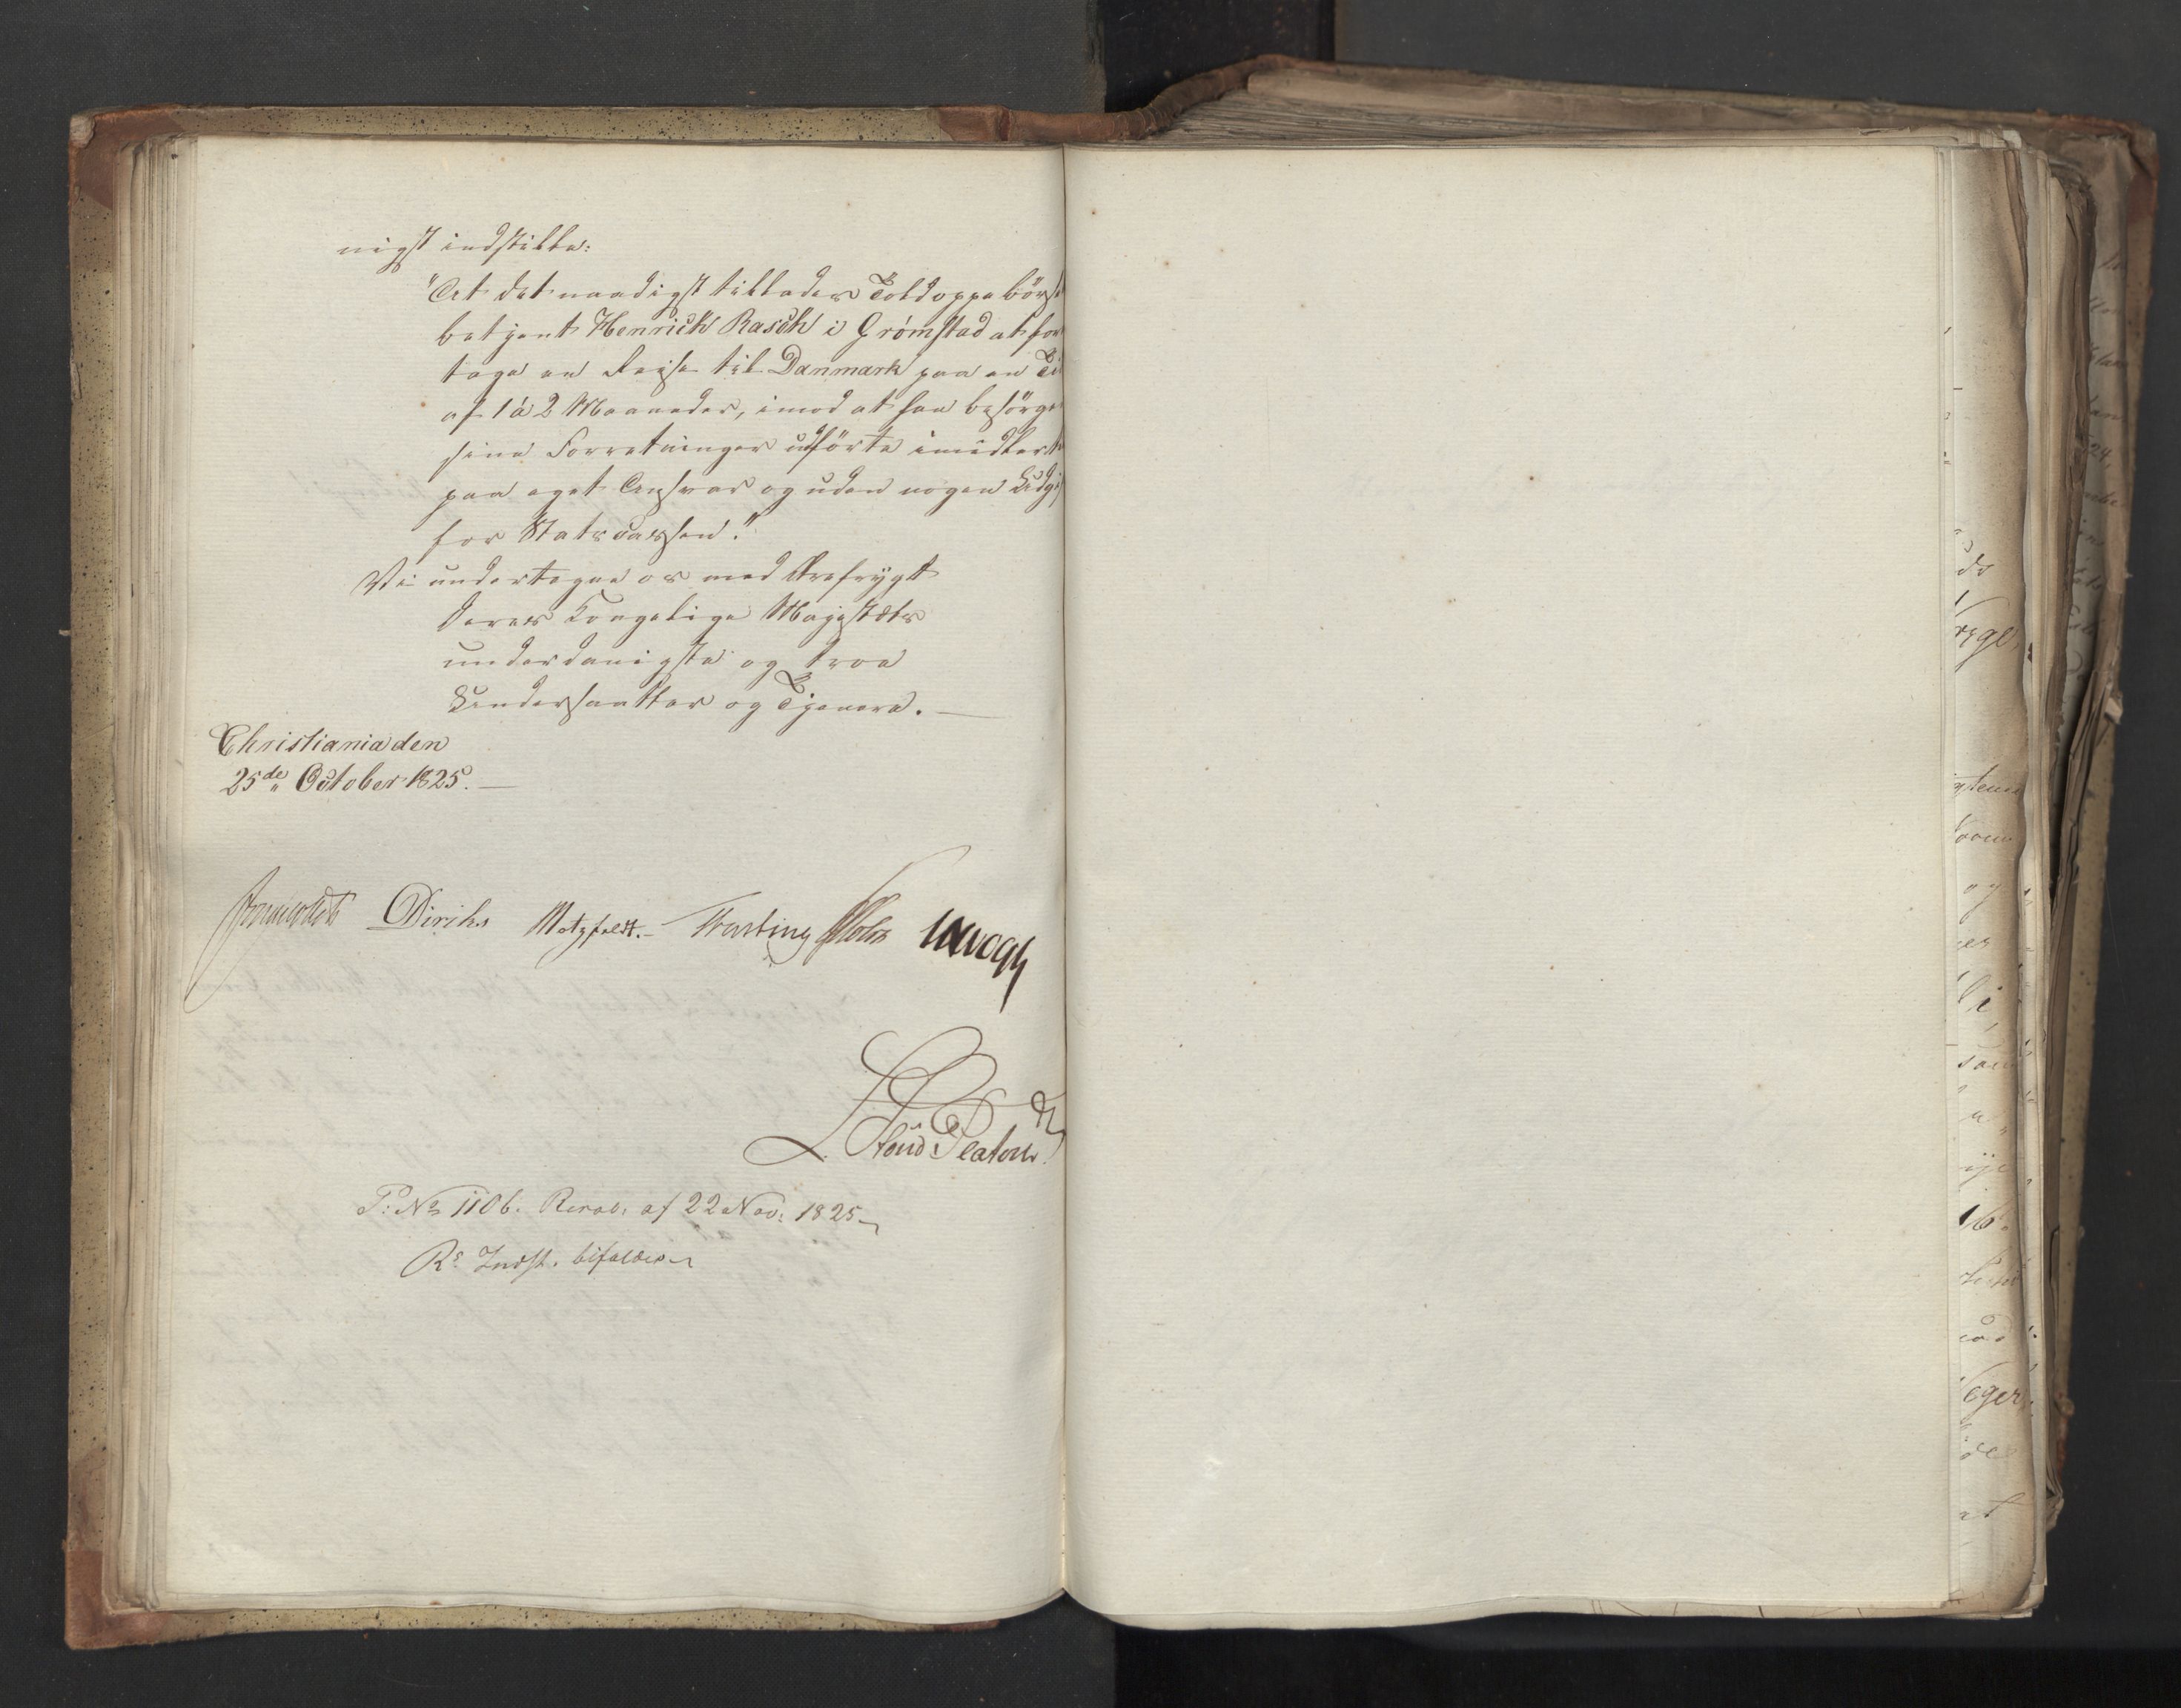 nigst indstille:
"At det naadigst tillades Toldoppebörs
betjent Henrich Rasch i Grömstad at fore
tage en Reise til Danmark paa en Ti
af 1 à 2 Maaneder, imod at han besörger
sine Forretninger udförte imidlerti
paa eget Ansvar og uden nogen Udgi
for Statscassen."
Vi undertegne os med Ærefrygt
Deres Kongelige Majestæts
underdanigste og troe
Undersaatter og Tjenere.
Christiania den
25de October 1825.
Diriks Motzfeldt. Fasting Holst JHVogt
L. Stoud Platou
P: No 1106. Resol: af 22 Nov: 1825
Rs Indst. bifaldes